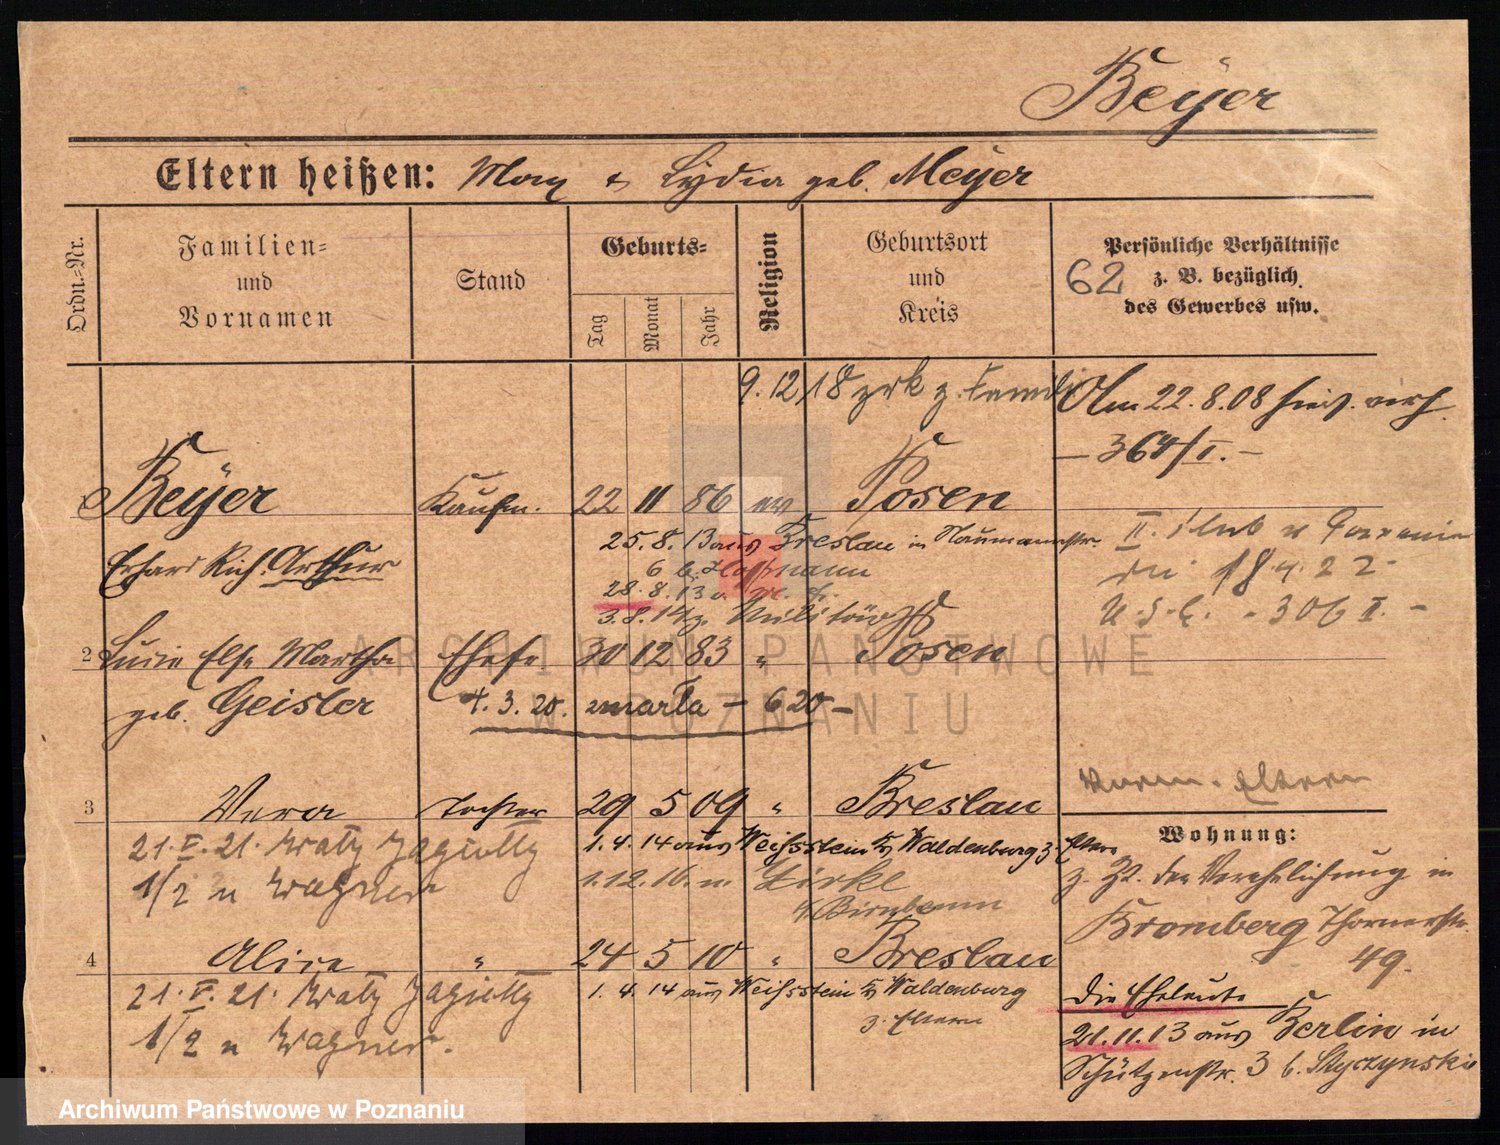 Beÿer
Eltern heißen: Max & Lÿdia geb. Meÿer
Ordn.-Nr.
Familien-
und
Vornamen
Stand
Geburts-
Tag
Monat
Jahr
Religion
Geburtsort
und
Kreis
Persönliche Verhältnisse
z. B. bezüglich
des Gewerbes usw.
62
9.12.18 zrk z.
Am 22.8.08 hier verh.
— 364/I. —
1 Beÿer Kaufm. 22 11 86 ev Posen
Erhard Rich. Arthur
25.8.13 aus Breslau in Naumannstr.
6 b. Hoffmann
28.8.13
3.8.14 z. Militär
II. ślub z
18.4.22
U.S.C. - 306 I. -
2 Lucie Else Martha Ehefr 30 12 83 " Posen
geb. Geisler
4.3.20. zmarła - 620 -
Eltern
3 Vera Tochter 29 5 09 " Breslau
21.V.21. Jagiełły
1/2 u Wagner
1.4.14 aus Weissstein Kr Waldenburg z. Eltern
1.12.16. n. Zirke
Kr Birnbaum
4 Alice " 24 5 10 " Breslau
21.V.21. Jagiełły
1/2 u Wagner.
1.4.14 aus Weissstein Kr Waldenburg
z. Eltern
Wohnung:
z. Zt. der Verehelichung in
Bromberg Thornerstr.
49.
Die Eheleute
21.11.13 aus Berlin in
Schützenstr. 3 b. Styczynski
ARCHIWUM PAŃSTWOWE
W POZNANIU
Archiwum Państwowe w Poznaniu